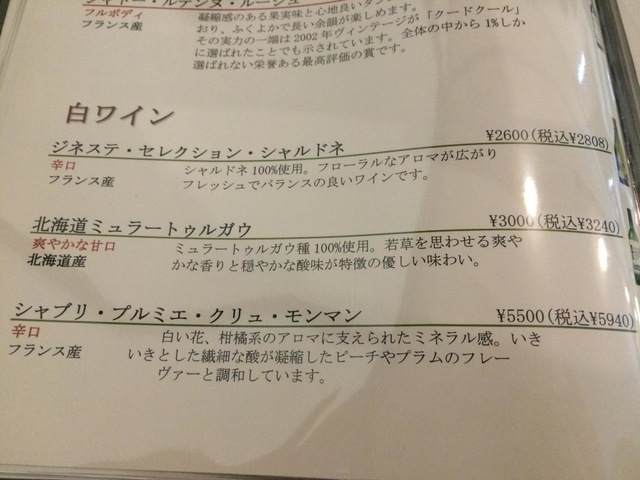 シャトー・ルデンヌ・ルージュ
フルボディ
凝縮感のある果実味と心地良いタンニン
フランス産
おり、ふくよかで長い余韻が楽しめます。
その実力の一端は2002年ヴィンテージが「クードクール」
に選ばれたことでも示されています。全体の中から1%しか
選ばれない栄誉ある最高評価の賞です。
白ワイン
ジネステ・セレクション・シャルドネ ¥2600(税込¥2808)
辛口 シャルドネ100%使用。フローラルなアロマが広がり
フランス産 フレッシュでバランスの良いワインです。
北海道ミュラートゥルガウ ¥3000(税込¥3240)
爽やかな甘口 ミュラートゥルガウ種100%使用。若草を思わせる爽や
北海道産 かな香りと穏やかな酸味が特徴の優しい味わい。
シャブリ・プルミエ・クリュ・モンマン ¥5500(税込¥5940)
辛口 白い花、柑橘系のアロマに支えられたミネラル感。いき
フランス産 いきとした繊細な酸が凝縮したピーチやプラムのフレー
ヴァーと調和しています。